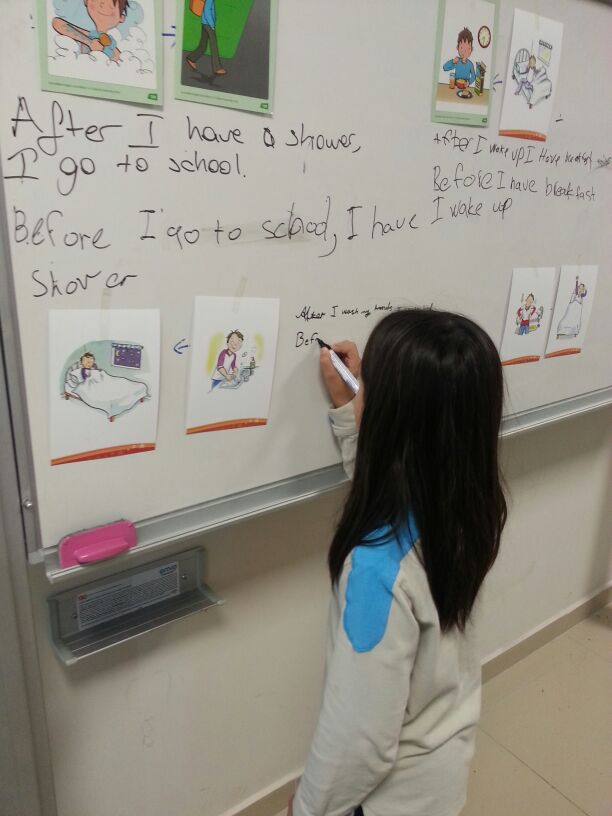 After I have a shower,
I go to school.
Before I go to school, I have
Shover
After I wake up I Have
Before I have breakfast
I wake up
After I wash my hands
Bef